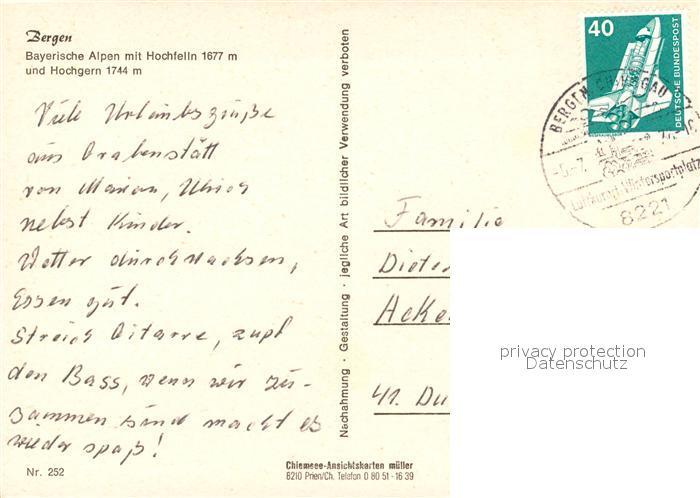 Bergen
Bayerische Alpen mit Hochfelln 1677 m
und Hochgern 1744 m
Viele Urlaubsgrüße
aus Grabenstätt
von Marion, Ulrich
nebst Kinder.
Wetter durchwachsen,
Essen gut.
Streich Gitarre, zupf
den Bass, wenn wir zu-
sammen sind macht es
wieder spaß!
Nr. 252
Nachahmung · Gestaltung · jegliche Art bildlicher Verwendung verboten
Chiemsee-Ansichtskarten müller
8210 Prien/Ch. Telefon 0 80 51 - 16 39
40
DEUTSCHE BUNDESPOST
BERGEN CHIEMGAU
Luftkurort Wintersportplatz
8221
Familie
Dieter
Acke
41. Du
privacy protection
Datenschutz